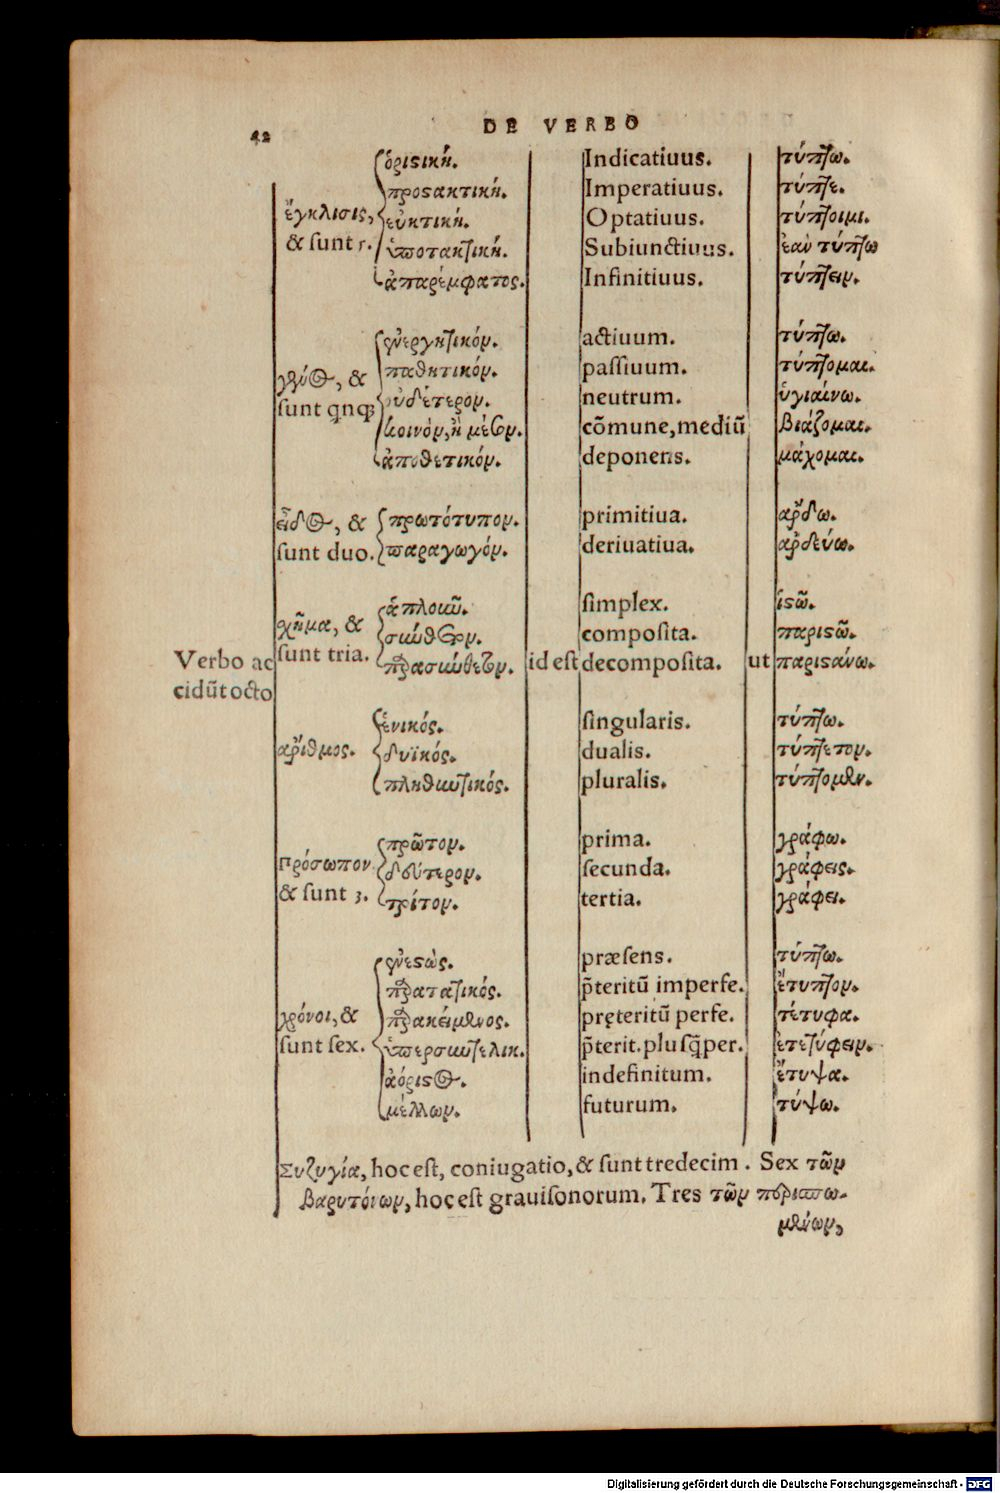 42 DE VERBO
ὁριστική. Indicatiuus. τύπτω.
προστακτική. Imperatiuus. τύπτε.
ἔγκλισις, εὐκτική. Optatiuus. τύπτοιμι.
& ſunt 5. ὑποτακτική. Subiunctiuus. ἐὰν τύπτω
ἀπαρέμφατος. Infinitiuus. τύπτειν.
ἐνεργητικόν. actiuum. τύπτω.
παθητικόν. paſſiuum. τύπτομαι.
γένος, & οὐδέτερον. neutrum. ὑγιαίνω.
ſunt qnqꝫ κοινὸν, ἢ μέσον. cõmune, mediũ βιάζομαι.
ἀποθετικόν. deponens. μάχομαι.
εἶδος, & πρωτότυπον. primitiua. ἄρδω.
ſunt duo. παραγωγόν. deriuatiua. ἀρδεύω.
ἁπλοῦν. ſimplex. ἱστῶ.
σχῆμα, & σύνθετον. compoſita. παριστῶ.
Verbo ac ſunt tria. παρασύνθετον. id eſt decompoſita. ut παριστάνω.
cidũt octo
ἑνικός. ſingularis. τύπτω.
ἄριθμος. δυϊκός. dualis. τύπτετον.
πληθυντικός. pluralis. τύπτομεν.
πρῶτον. prima. γράφω.
Πρόσωπον δεύτερον. ſecunda. γράφεις.
& ſunt 3. τρίτον. tertia. γράφει.
ἐνεστώς. præſens. τύπτω.
παρατατικός. p̃teritũ imperfe. ἔτυπτον.
χρόνοι, & παρακείμενος. pręteritũ perfe. τέτυφα.
ſunt ſex. ὑπερσυντελικ. p̃terit. pluſq̃per. ἐτετύφειν.
ἀόριστος. indefinitum. ἔτυψα.
μέλλων. futurum. τύψω.
Συζυγία, hoc eſt, coniugatio, & ſunt tredecim. Sex τῶν
βαρυτόνων, hoc eſt grauiſonorum. Tres τῶν περισπω-
μένων,
Digitalisierung gefördert durch die Deutsche Forschungsgemeinschaft - DFG